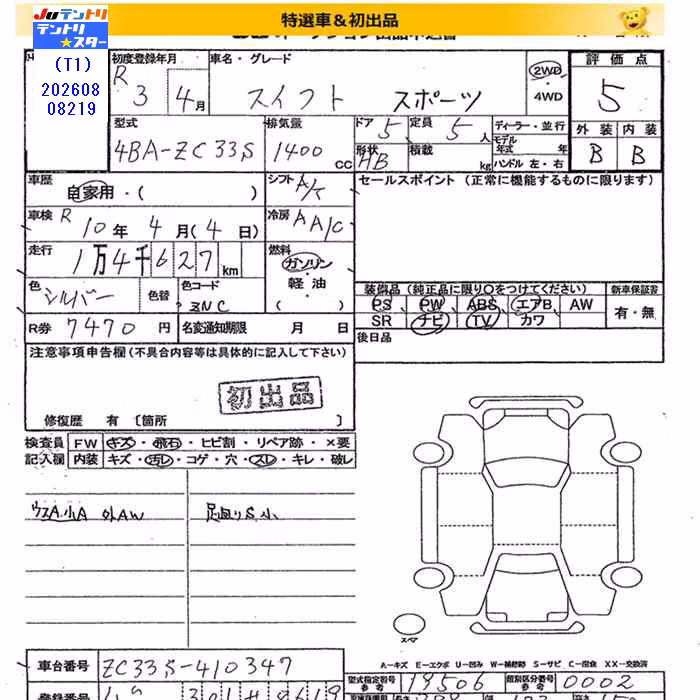 特選車&初出品
JUテントリ
テントリ★スター
(T1)
202608
08219
初度登録年月
R 3年 4月
車名・グレード
スイフト スポーツ
2WD
4WD
評価点
5
外装 内装
B B
型式
4BA-ZC33S
排気量
1400 cc
ドア 5
定員 5人
ディーラー・並行
モデル年式 年
形状 HB
積載 kg
ハンドル 左・右
車歴
自家用・( )
シフト A/T
セールスポイント(正常に機能するものに限ります)
車検 R 10年 4月(4日)
冷房 AA/C
走行
1万4千627km
燃料
ガソリン
軽油
( )
色 シルバー 色替
色コード ZNC
装備品(純正品に限り○をつけてください)
新車保証書
PS PW ABS エアB AW
SR ナビ TV カワ
有・無
R券 7470円
名変通知期限 月 日
後日品
注意事項申告欄(不具合内容等は具体的に記入して下さい)
初出品
修復歴 有 〔箇所 〕
検査員 FW キズ・飛石・ヒビ割・リペア跡・×要
記入欄 内装 キズ・汚レ・コゲ・穴・スレ・キレ・破レ
ウスA.小A 外AW
足回りS小
スペア
A-キズ E-エクボ U-凹み W-補修跡 S-サビ C-腐食 XX-交換済
車台番号 ZC33S-410347
型式指定番号 参考 19506
類別区分番号 参考 0002
登録番号